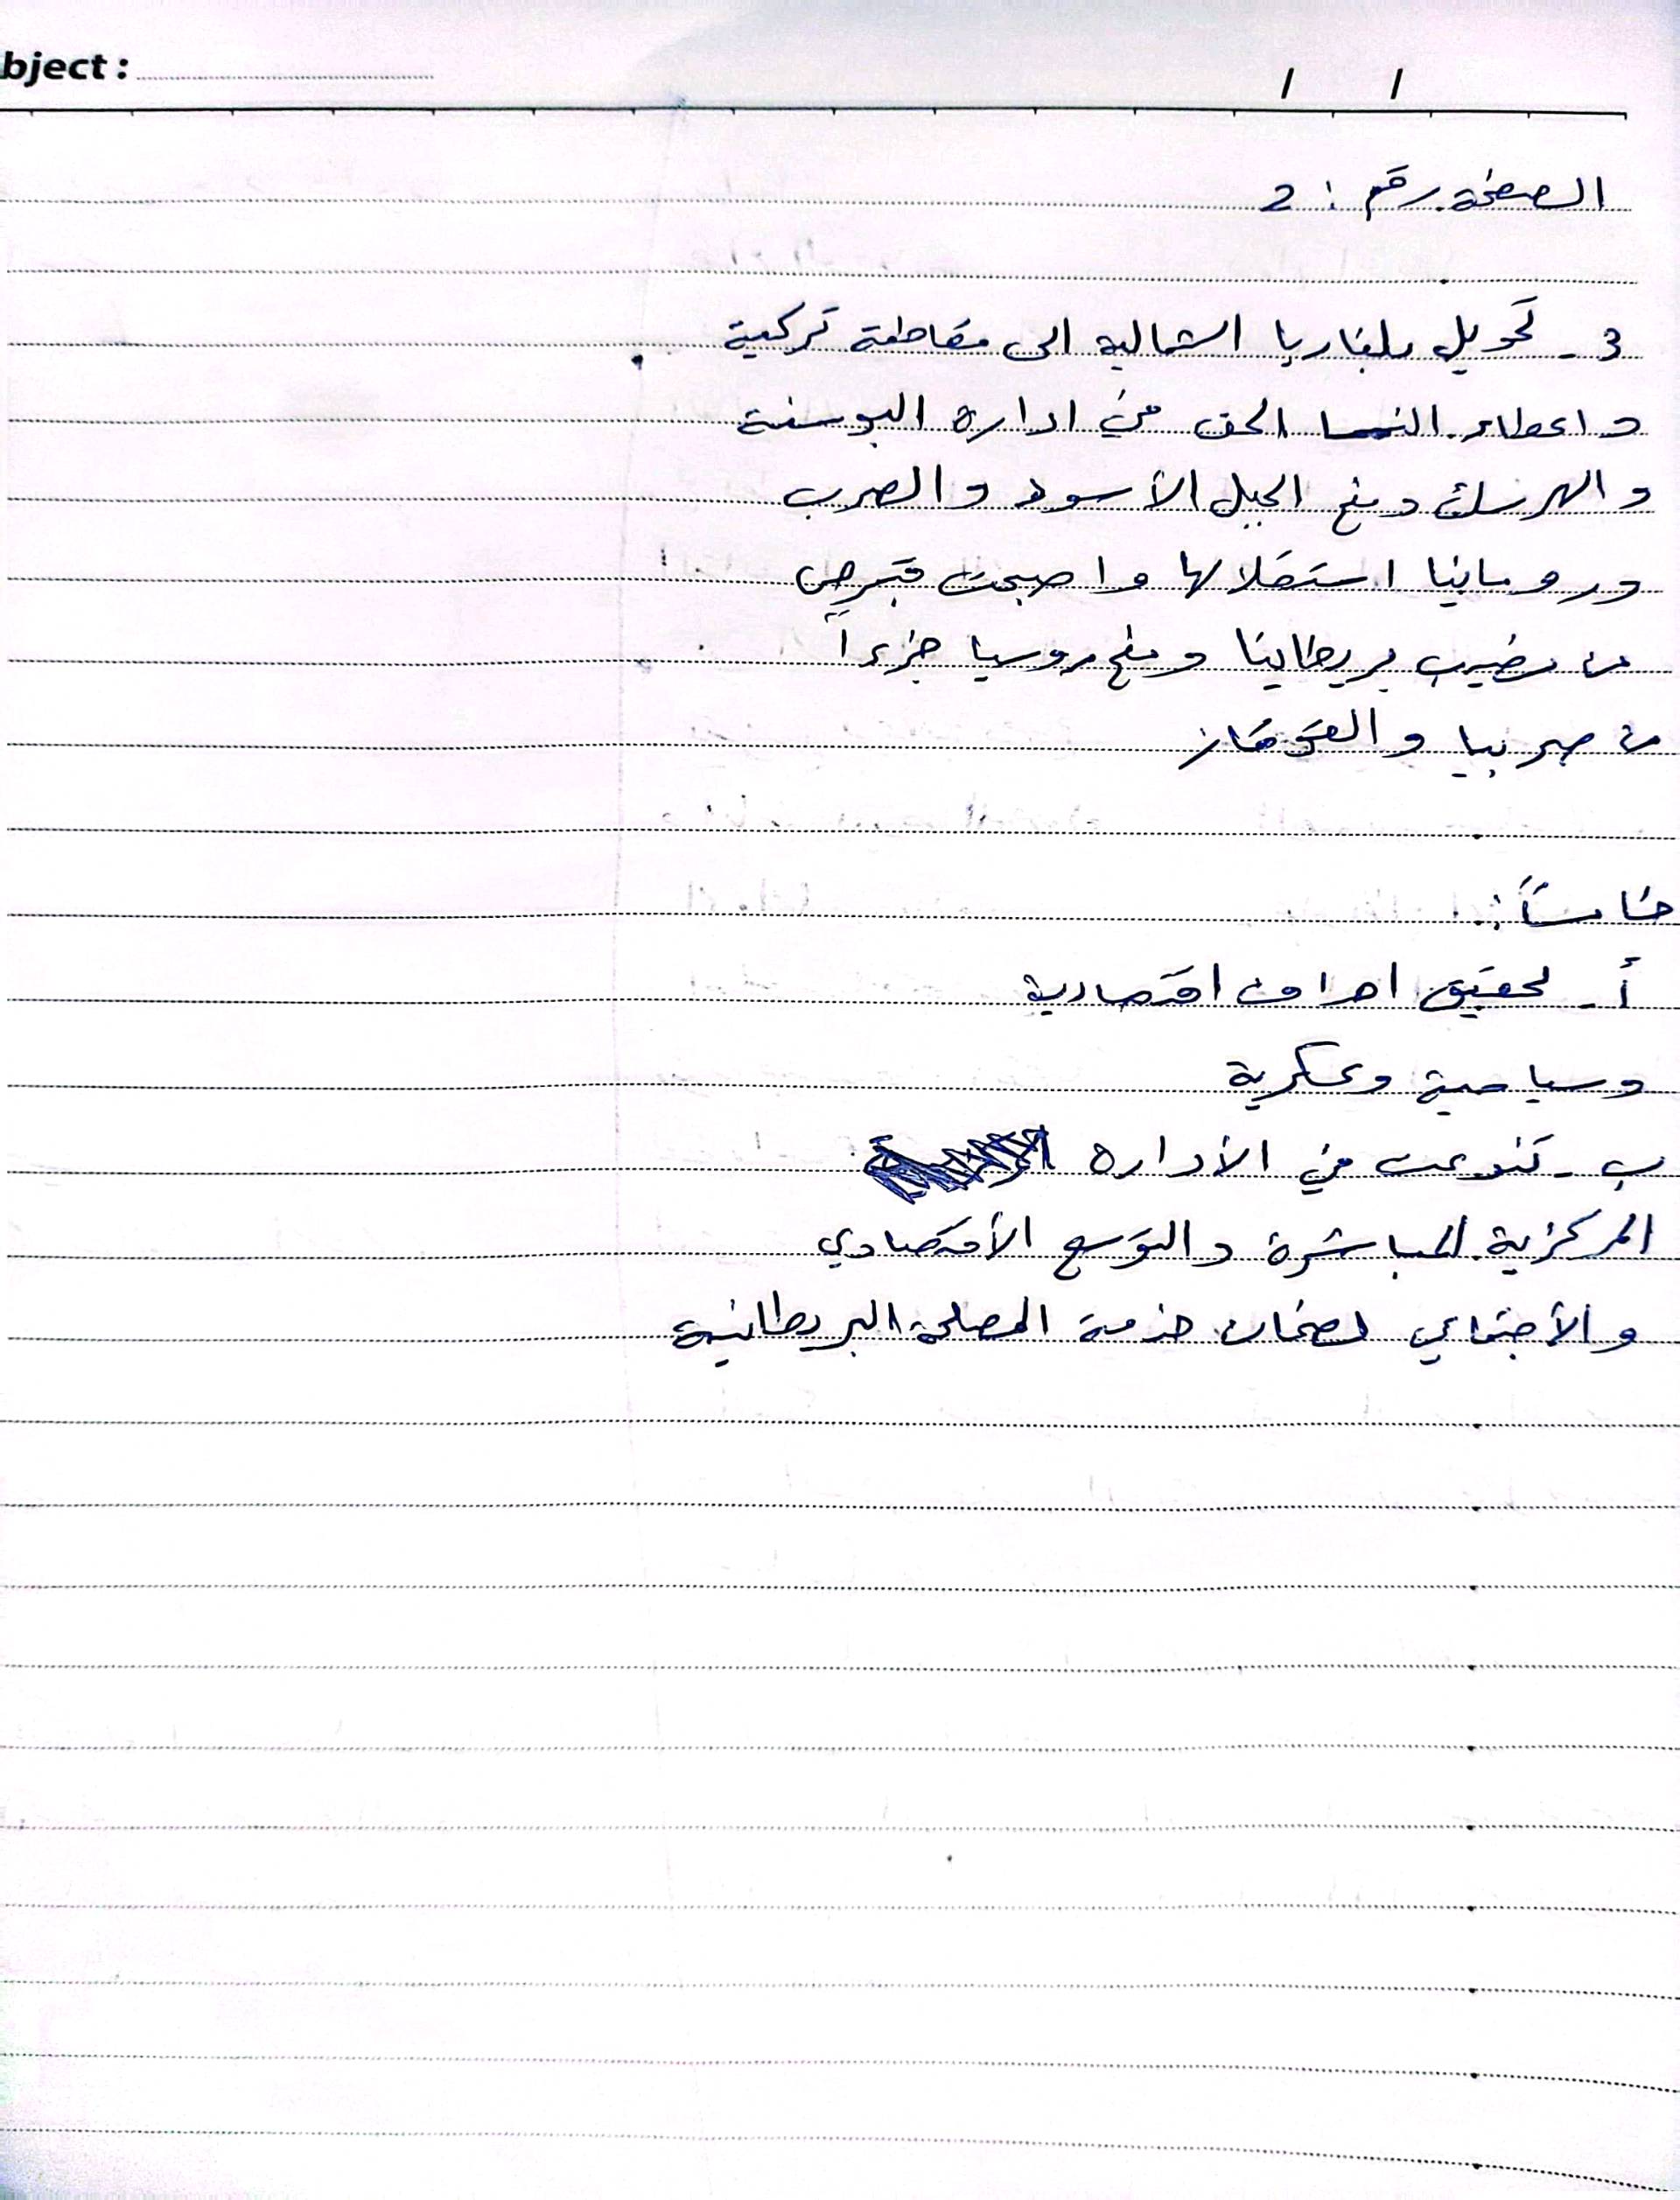 bject :
/ /
الصفحة رقم : 2
3 - تحويل بلغاريا الشمالية الى مقاطعة تركية
و اعطاء النمسا الحق في ادارة البوسنة
و الهرسك ومنح الجبل الأسود و الصرب
ورومانيا استقلالها واصبحت قبرص
من نصيب بريطاينا ومنح روسيا جزءاً
من صربيا و القوقاز
خامساً :
أ - لحقيق اهداف اقتصادية
وسياحية وعسكرية
ب - تنوعت في الأدارة
المركزية المباشرة و التوسع الأقتصادي
و الأجتماعي لضمان خدمة المصلحة البريطانية